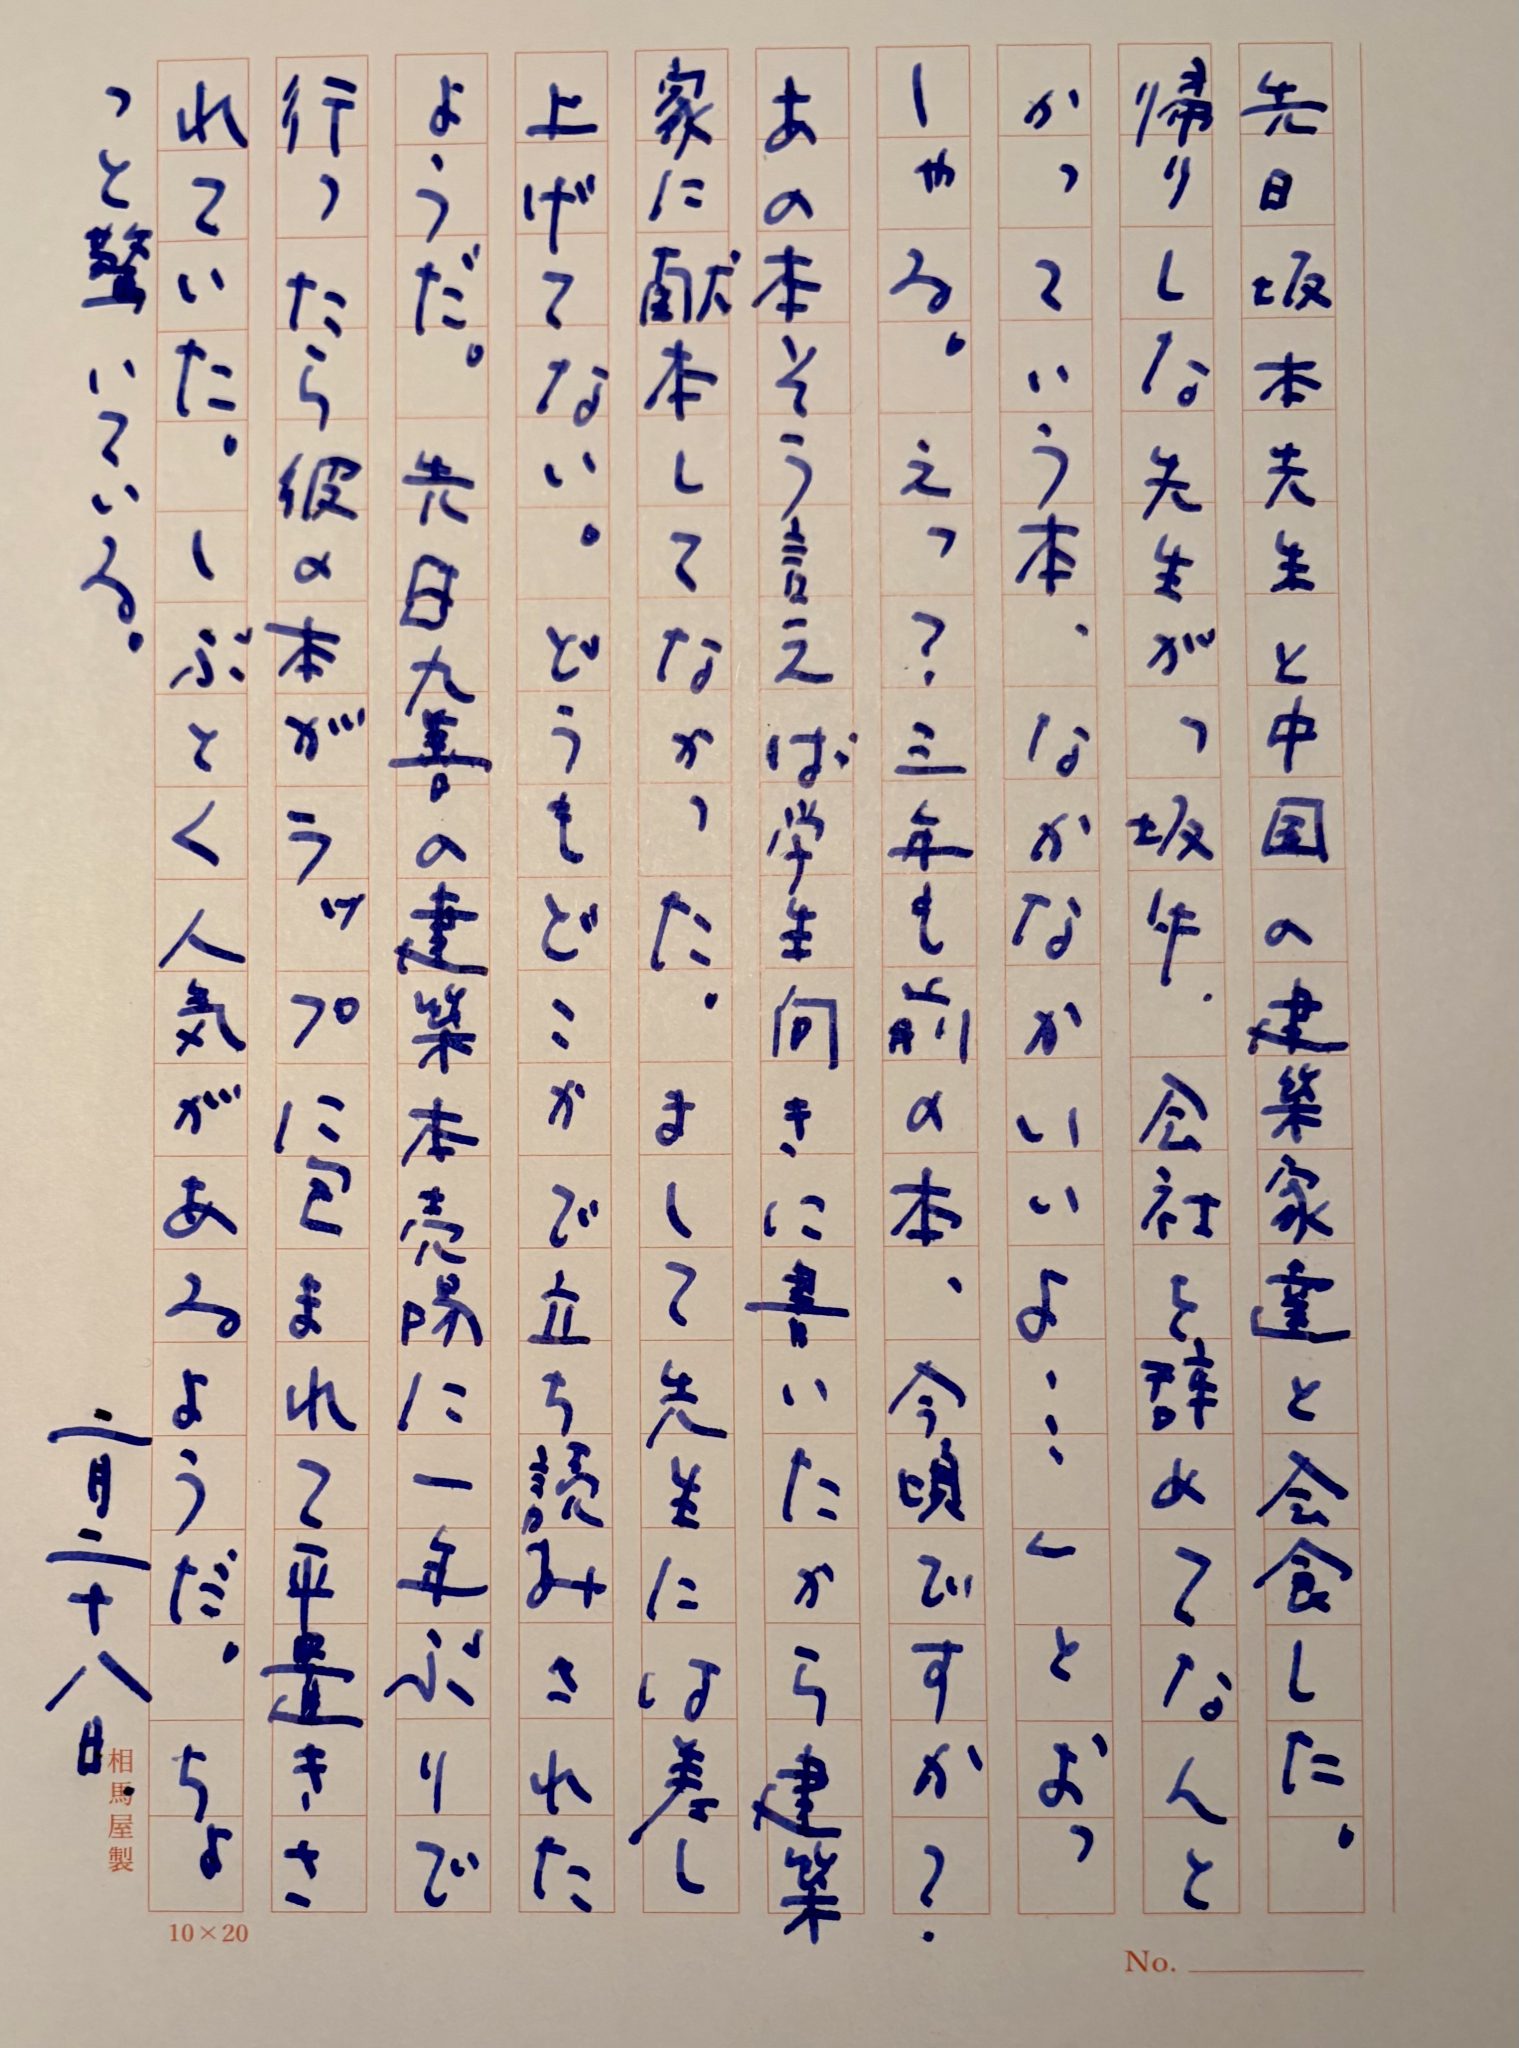 先日坂本先生と中国の建築家達と会食した。
帰りしな先生がっ坂牛.会社を辞めてなんと
かっていう本、なかなかいいよ……」とおっ
しゃる。えっ?三年も前の本、今頃ですか?
あの本そう言えば学生向きに書いたから建築
家に献本してなかった。まして先生には差し
上げてない。どうもどこかで立ち読みされた
ようだ。先日丸善の建築本売場に一年ぶりで
行ったら彼の本がラップに包まれて平置きさ
れていた。しぶとく人気があるようだ。ちょ
っと驚いている。
二月二十八日.
相馬屋製
10×20
No.